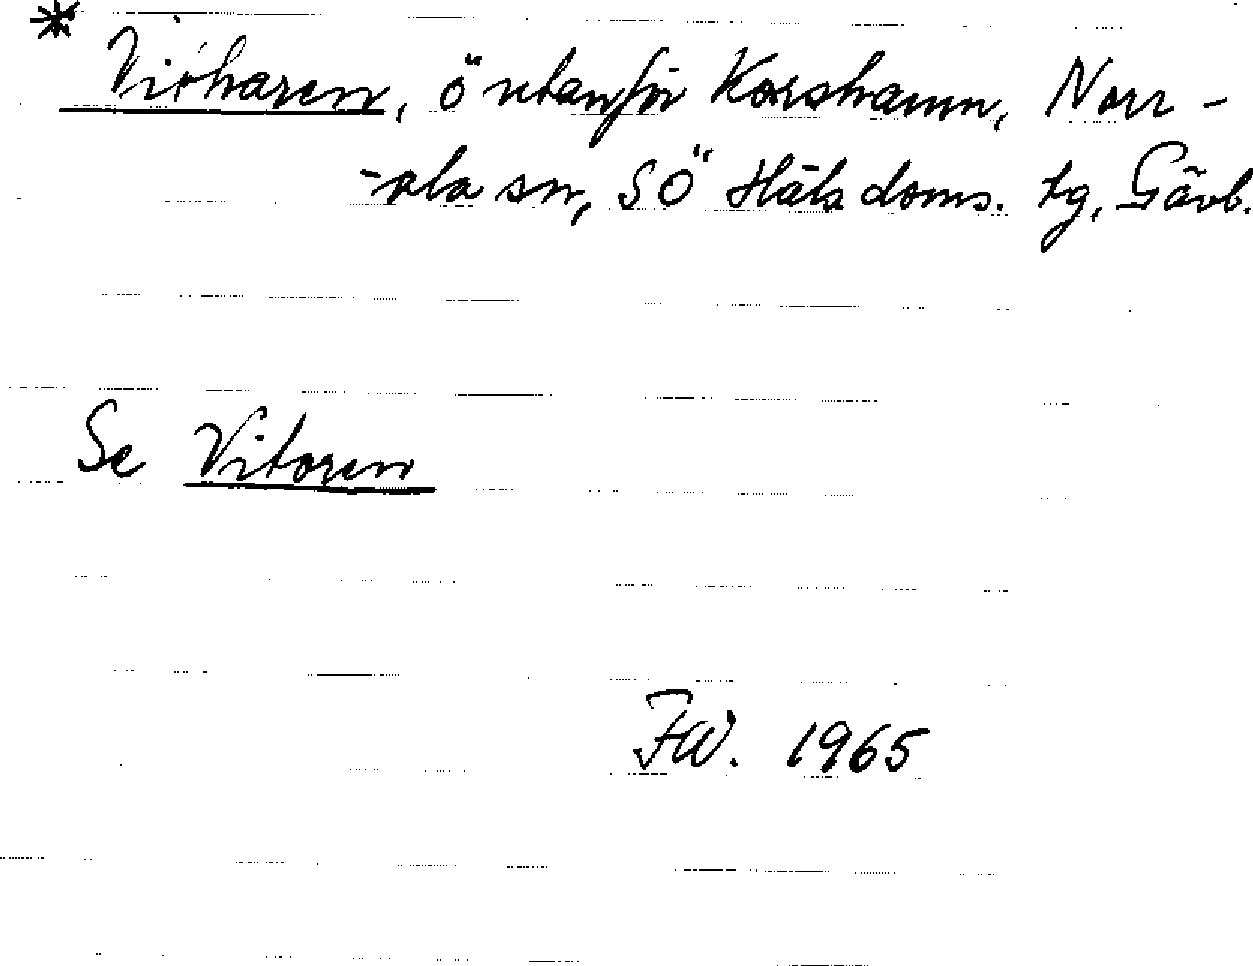 * Vitharen, ö utanför Korshamn, Norr-
-ala sn, SÖ Häls doms. tg, Gävb.
Se Vitoren
FW. 1965